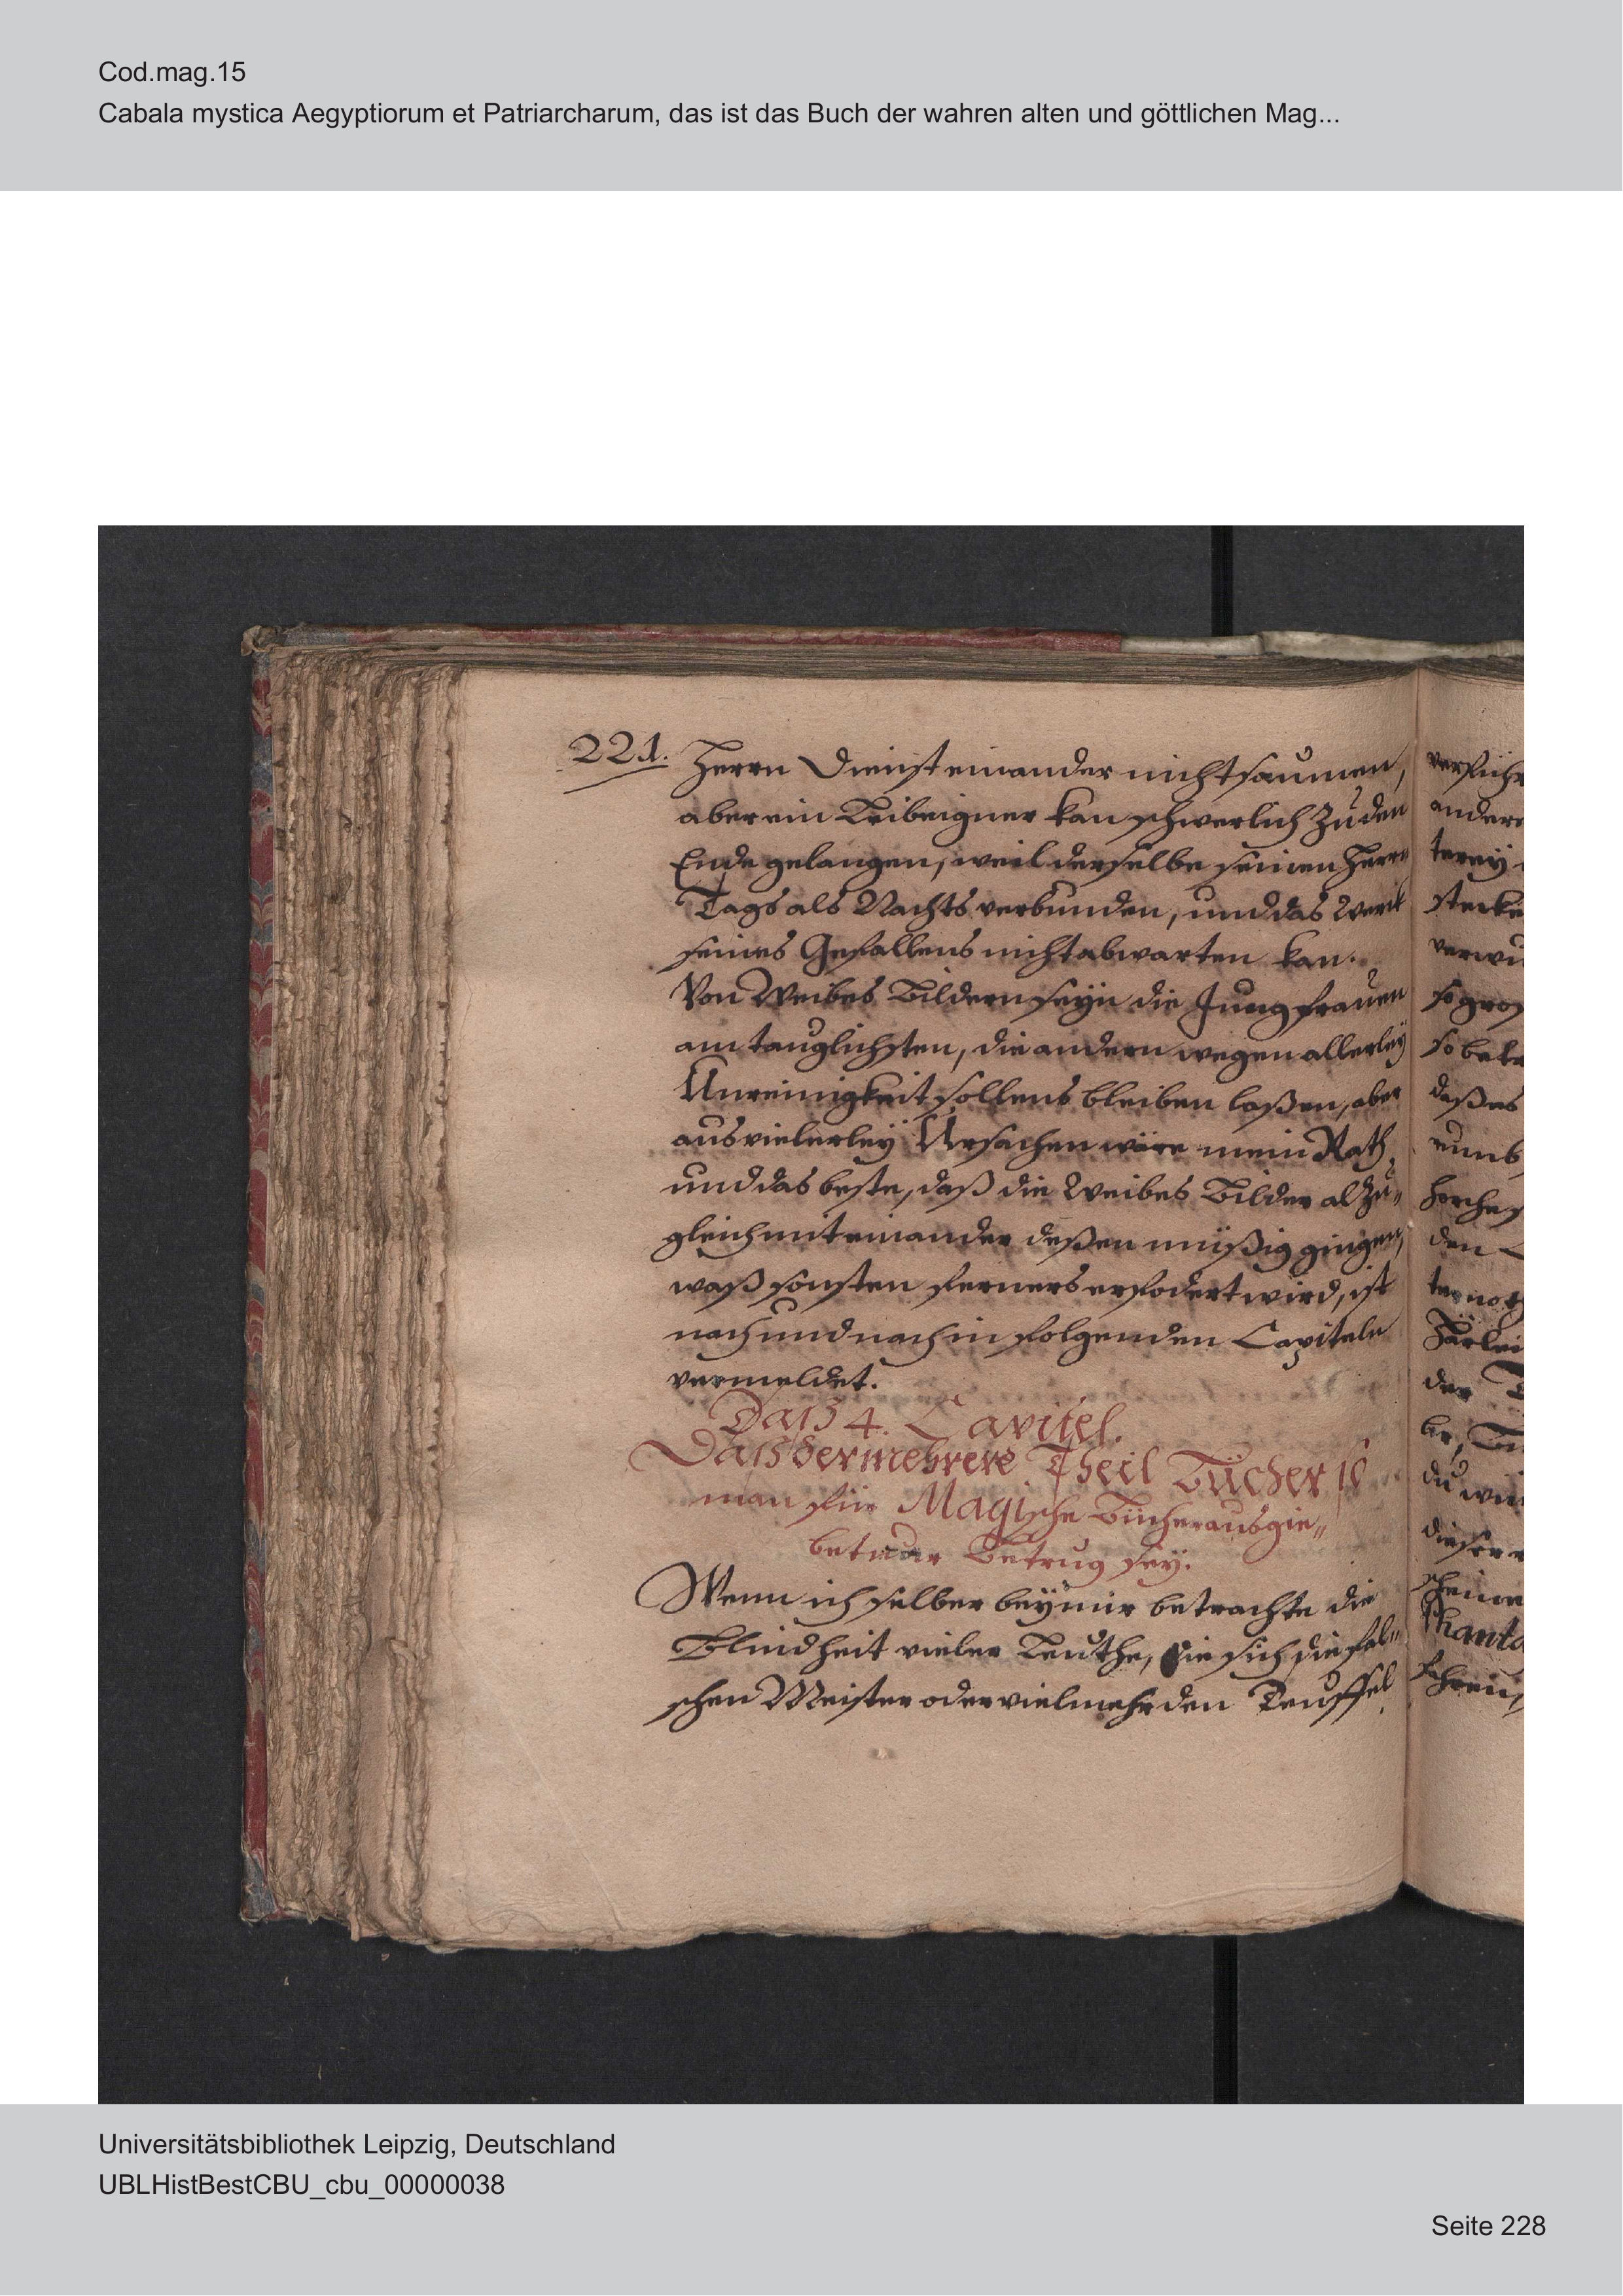 Cod.mag.15
Cabala mystica Aegyptiorum et Patriarcharum, das ist das Buch der wahren alten und göttlichen Mag...
221.
Herrn Dienst einander nicht saumen,
aber ein Leibeigner kan schwerlich zu den
Ende gelangen, weil derselbe seinen Herrn
Tags als Nachts verbunden, und das Werk
seines Gefallens nicht abwarten kan.
Von Weibes Bildern seyn die Jungfrauen
am tauglichsten, die andern wegen allerley
Unreinigkeit sollens bleiben laßen, aber
aus vielerley Ursachen wäre mein Rath,
und das beste, daß die Weibes Bilder al zu„
gleich mit einander deßen müßig gingen,
waß sonsten ferners erfodert wird, ist
nach und nach in folgenden Capiteln
vermeldet.
Daß 4. Capitel.
Daß der mehrere Theil Bücher so
man für Magische Bücher ausgie„
bet nur Betrug sey.
Wenn ich selber bey mir betrachte die
Blindheit vieler Leuthe, die sich die fal„
schen Meister oder vielmehr den Teuffel
verführ
andere
terey
stecke
verwu
so gros
daßes
den
der
du
Universitätsbibliothek Leipzig, Deutschland
UBLHistBestCBU_cbu_00000038
Seite 228